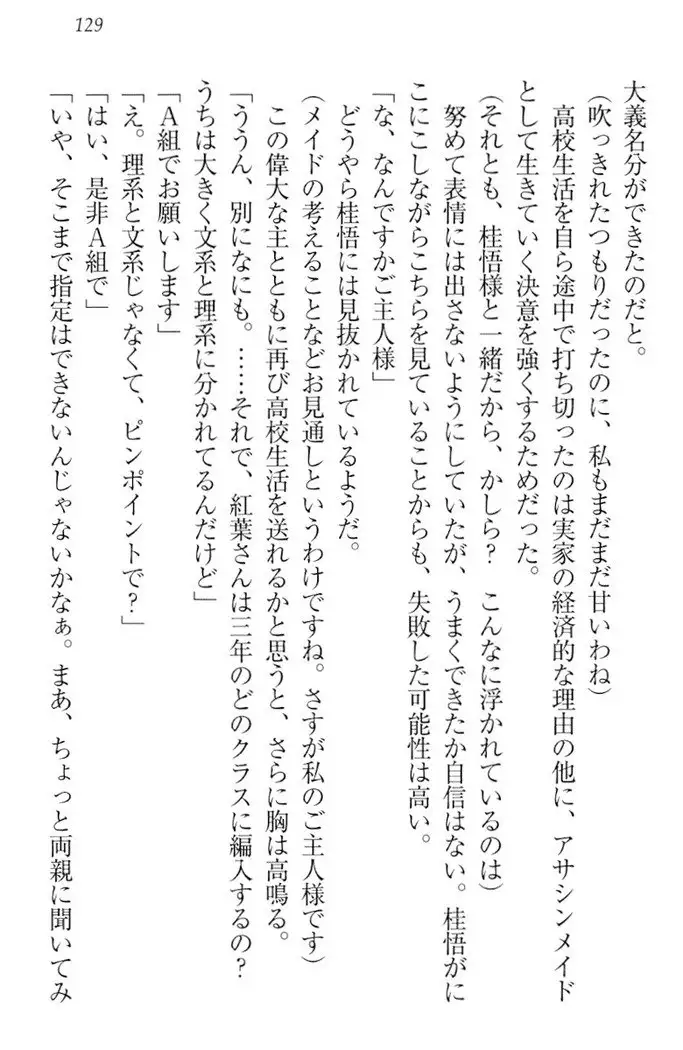 129
大義名分ができたのだと。
(吹っきれたつもりだったのに、私もまだまだ甘いわね)
高校生活を自ら途中で打ち切ったのは実家の経済的な理由の他に、アサシンメイド
として生きていく決意を強くするためだった。
(それとも、桂悟様と一緒だから、かしら?　こんなに浮かれているのは)
努めて表情には出さないようにしていたが、うまくできたか自信はない。桂悟がに
こにこしながらこちらを見ていることからも、失敗した可能性は高い。
「な、なんですかご主人様」
どうやら桂悟には見抜かれているようだ。
(メイドの考えることなどお見通しというわけですね。さすが私のご主人様です)
この偉大な主とともに再び高校生活を送れるかと思うと、さらに胸は高鳴る。
「ううん、別になにも。……それで、紅葉さんは三年のどのクラスに編入するの?
うちは大きく文系と理系に分かれてるんだけど」
「A組でお願いします」
「え。理系と文系じゃなくて、ピンポイントで?」
「はい、是非A組で」
「いや、そこまで指定はできないんじゃないかなぁ。まあ、ちょっと両親に聞いてみ